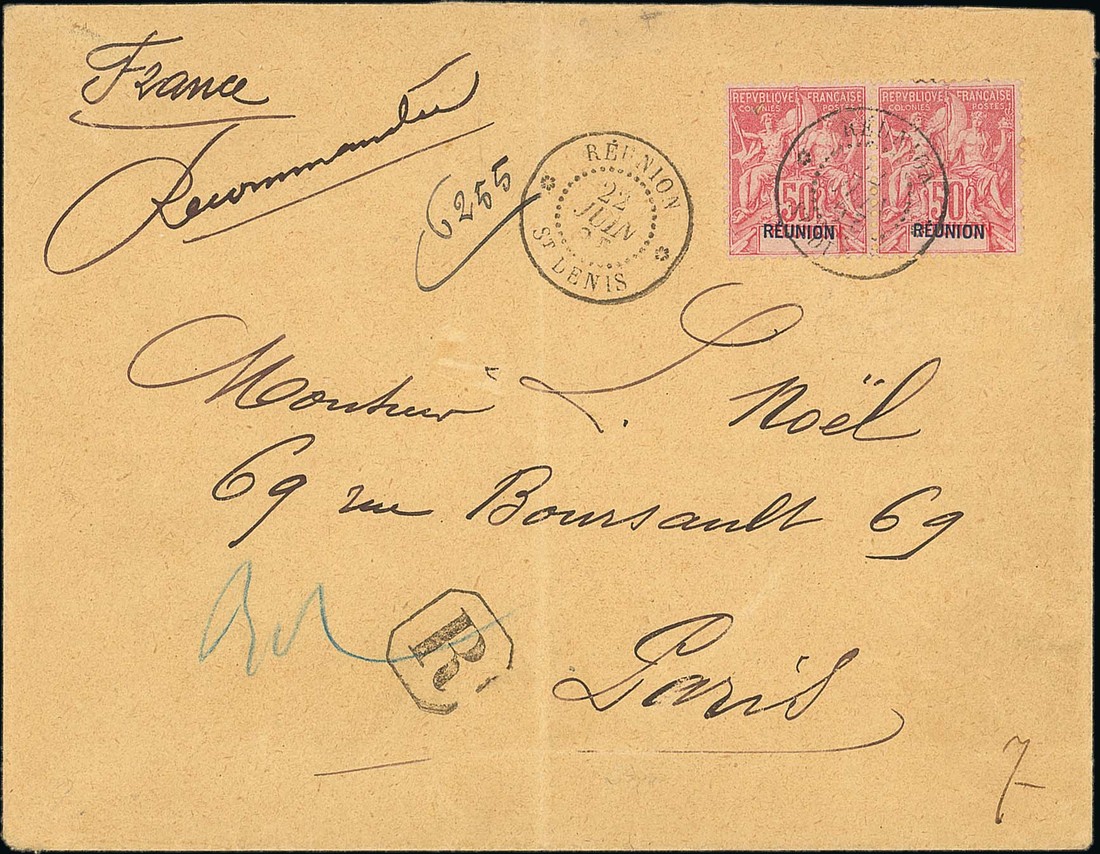 France
Recommandée
6255
RÉUNION
22
JUIN
ST DENIS
REPVBLIQUE FRANÇAISE
COLONIES POSTES
50
RÉUNION
REPVBLIQUE FRANÇAISE
COLONIES POSTES
50
RÉUNION
Monsieur L. Noël
69 rue Boursault 69
R
Paris
7